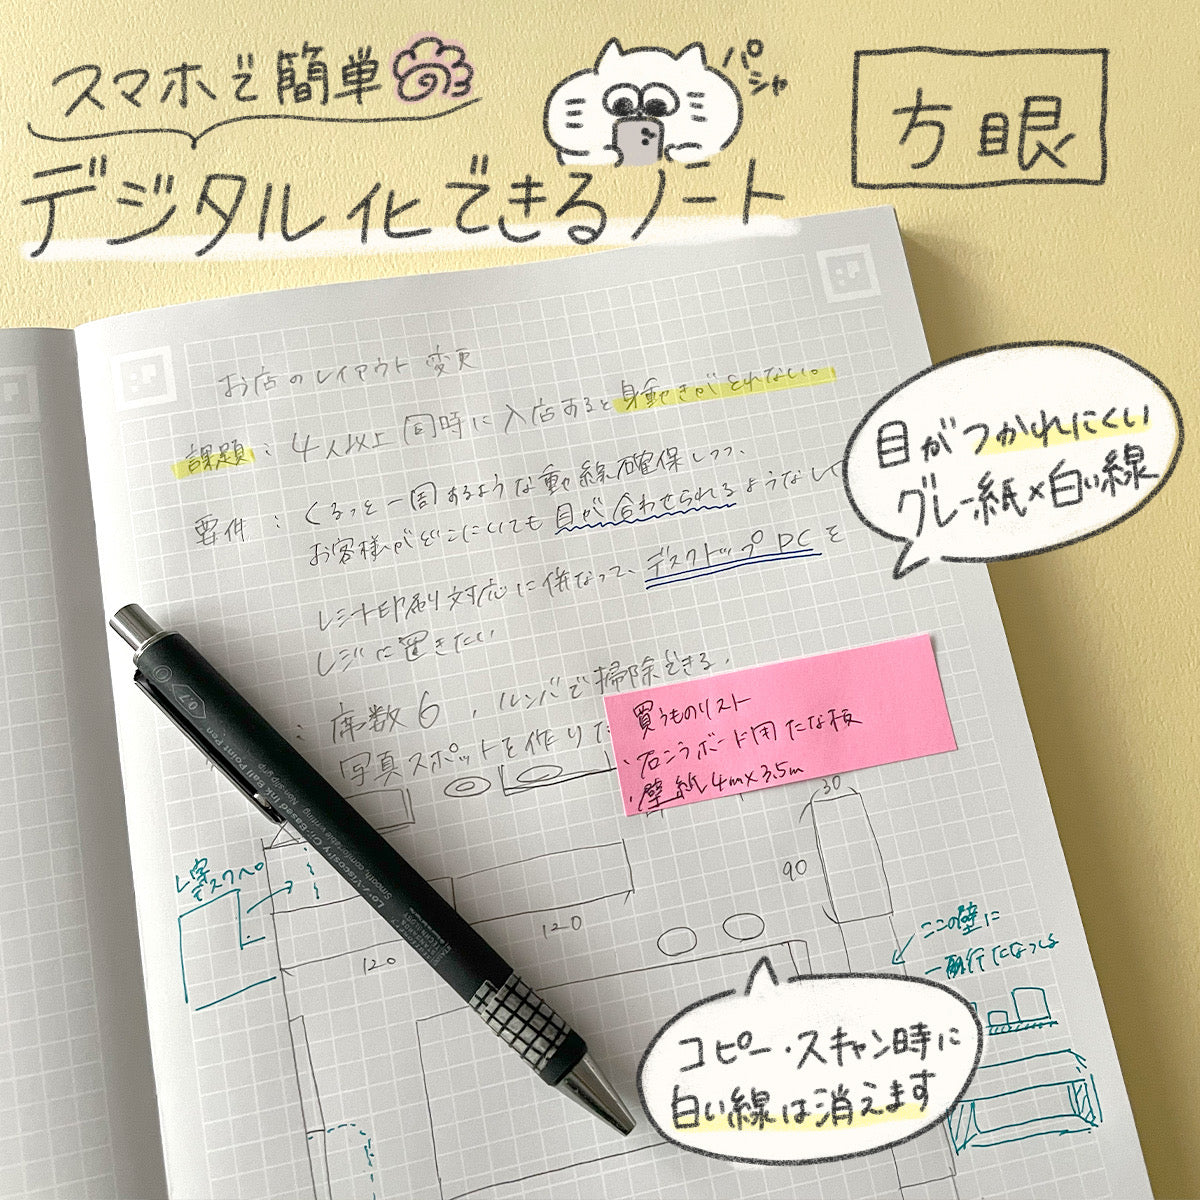 スマホで簡単
デジタル化できるノート
パシャ
方眼
お店のレイアウト変更
課題：4人以上同時に入店すると身動きがとれない。
要件：くるっと一周するような動線確保しつつ、
お客様がどこにいても目が合わせられるような
レシート印刷対応に併なって、デスクトップPCを
レジに置きたい
：席数6，ルンバで掃除できる，
写真スポットを作り
目がつかれにくい
グレー紙×白い線
買うものリスト
・石こうボード用たな板
・壁紙4m×3.5m
L字
デスクへ
30
90
120
120
ここの壁に
0.7
Low-Viscosity Oil-Based Ink Ball Point Pen
Smooth, comfortable writing Non-slip grip
コピー・スキャン時に
白い線は消えます